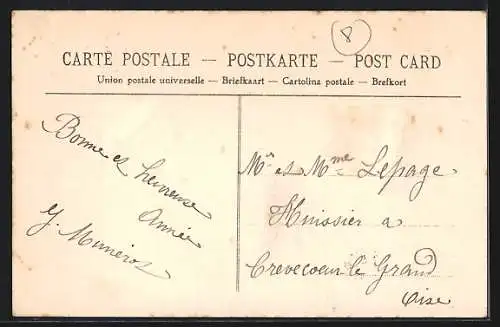 8
CARTE POSTALE — POSTKARTE — POST CARD
Union postale universelle — Briefkaart — Cartolina postale — Brefkort
Bonne et heureuse
Année
Mr et Mme Lepage
Huissier a
Crevecoeur le Grand
Oise